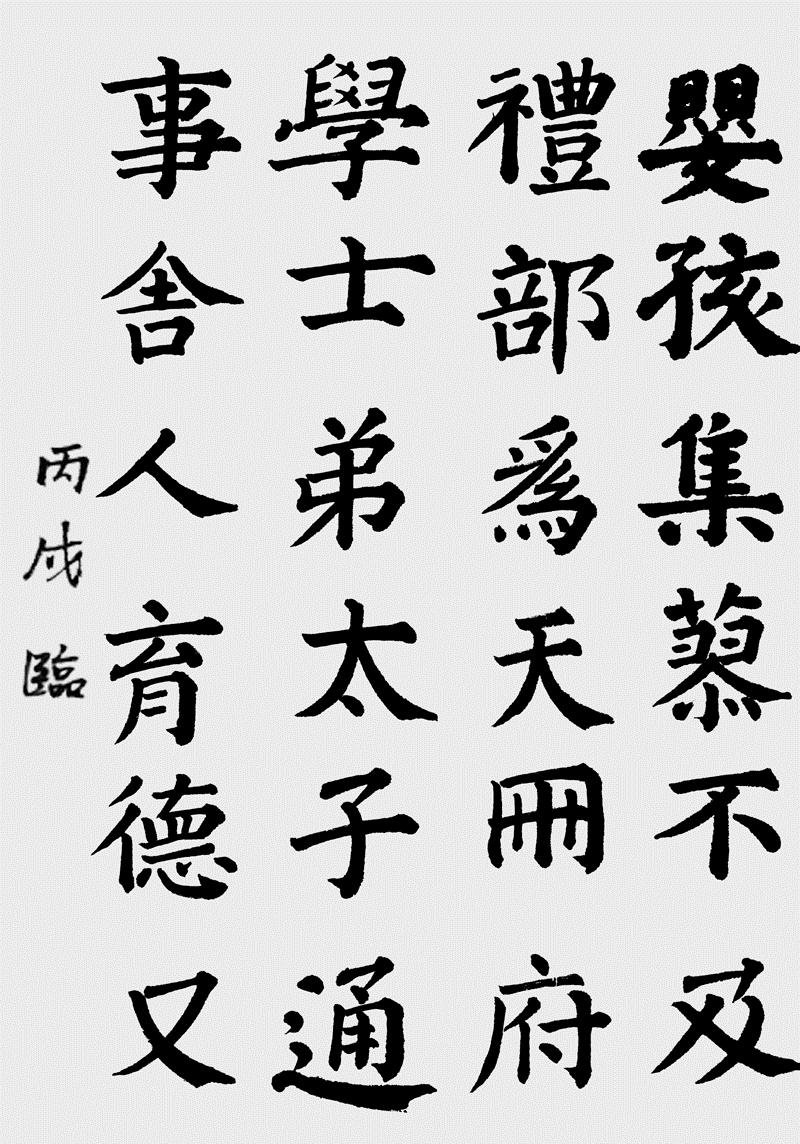 嬰孩集蓼不及
禮部爲天冊府
學士弟太子通
事舎人育德又
丙戌臨